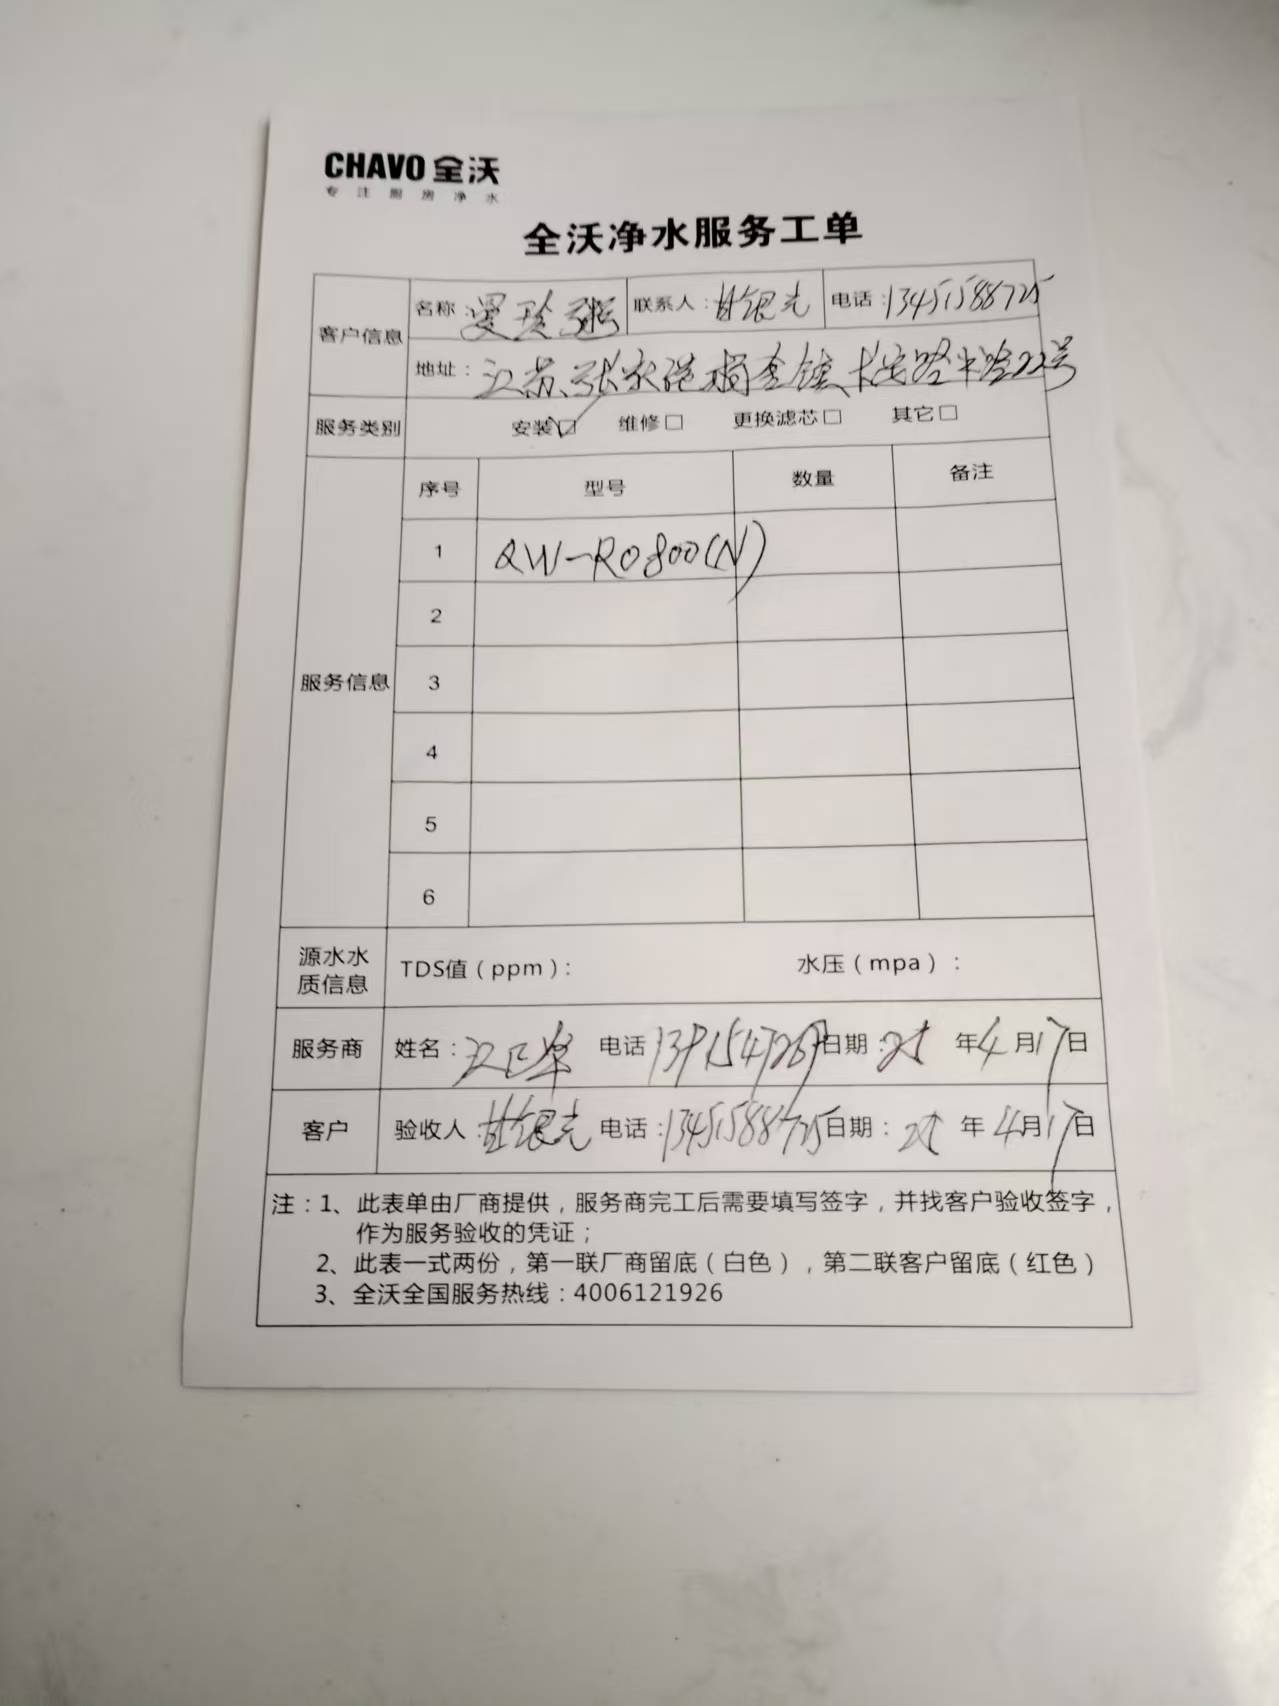 CHAVO 全沃
专注厨房净水
全沃净水服务工单
客户信息
名称：曼玲粥 联系人：甘银光 电话：13451588725
地址：江苏张家港杨舍镇 22号
服务类别 安装☑ 维修□ 更换滤芯□ 其它□
服务信息
序号 型号 数量 备注
1 QW-RO800(N)
2
3
4
5
6
源水水质信息 TDS值（ppm）： 水压（mpa）：
服务商 姓名： 电话 日期：25年4月17日
客户 验收人：甘银光 电话：13451588725 日期：25年4月17日
注：1、此表单由厂商提供，服务商完工后需要填写签字，并找客户验收签字，
作为服务验收的凭证；
2、此表一式两份，第一联厂商留底（白色），第二联客户留底（红色）
3、全沃全国服务热线：4006121926